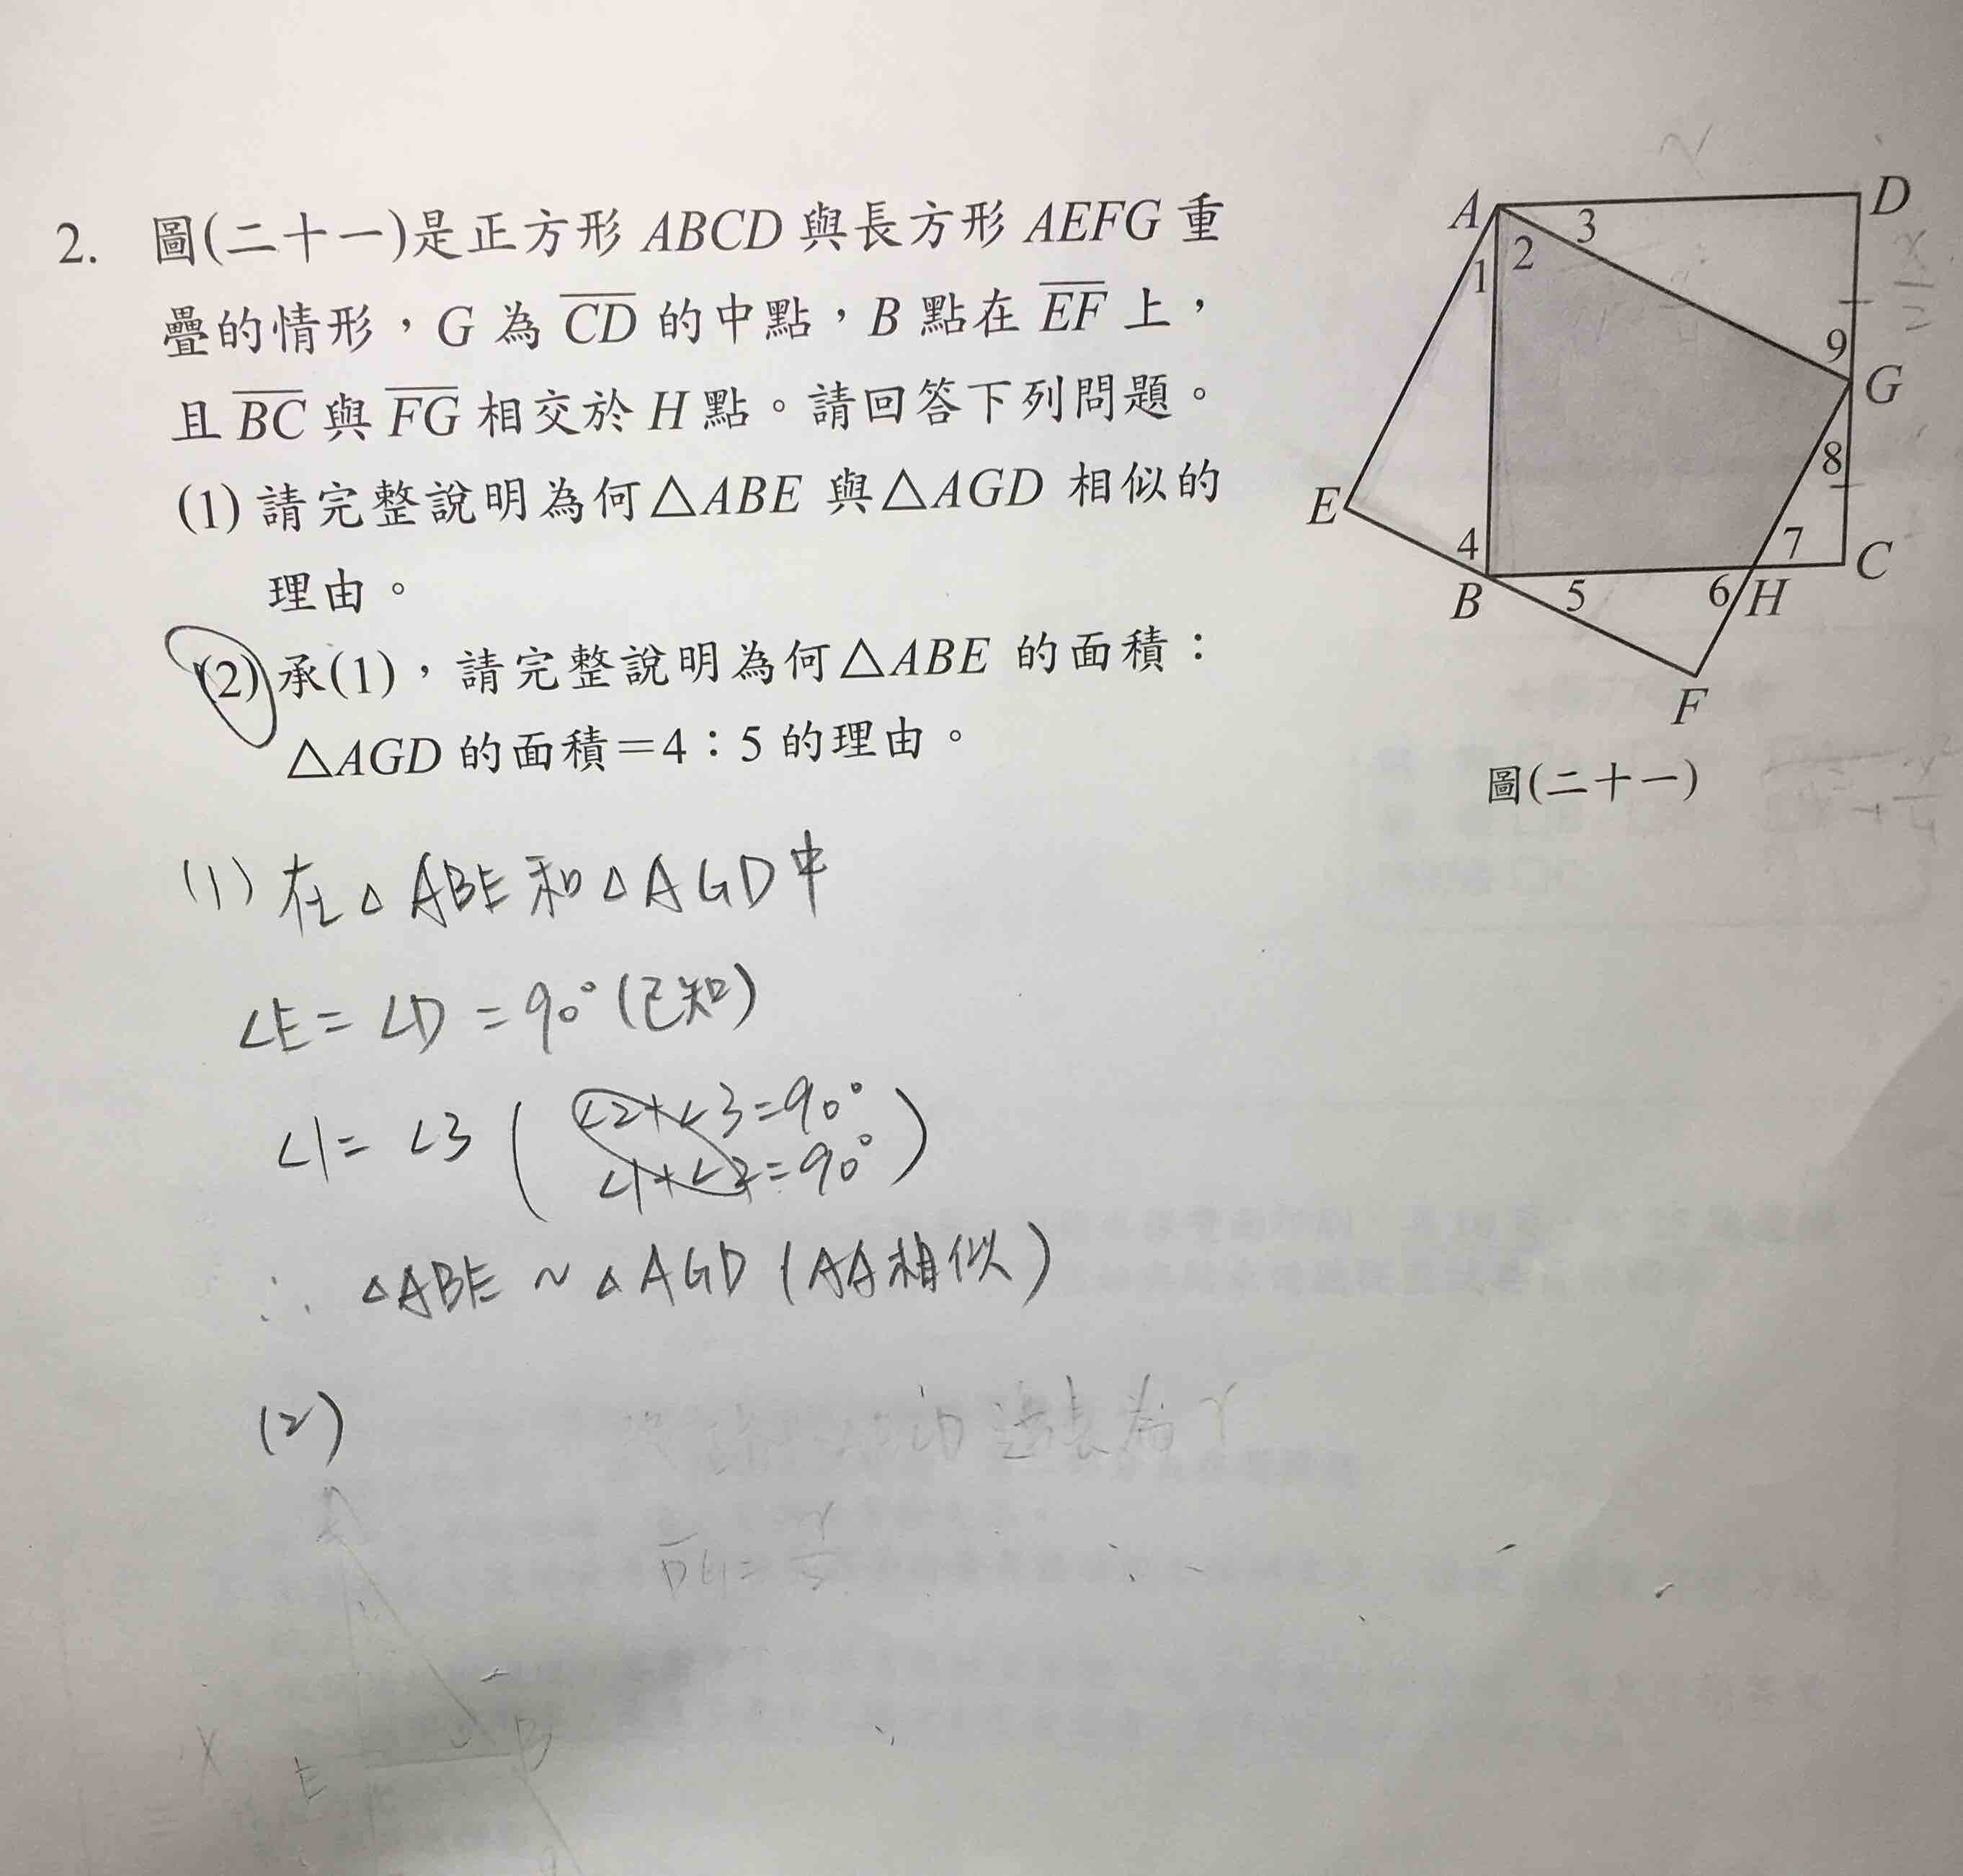 2. 圖(二十一)是正方形 ABCD 與長方形 AEFG 重
疊的情形，G 為 CD 的中點，B 點在 EF 上，
且 BC 與 FG 相交於 H 點。請回答下列問題。
(1) 請完整說明為何△ABE 與△AGD 相似的
理由。
(2) 承(1)，請完整說明為何△ABE 的面積：
△AGD 的面積＝4：5 的理由。
A
D
1
2
3
9
G
8
E
4
B
5
6
H
7
C
F
圖(二十一)
(1) 在△ABE和△AGD中
∠E=∠D=90°(已知)
∠1=∠3 (∠2+∠3=90°
∠1+∠2=90°)
∴ △ABE ~ △AGD (AA相似)
(2)
的邊長為
E
B